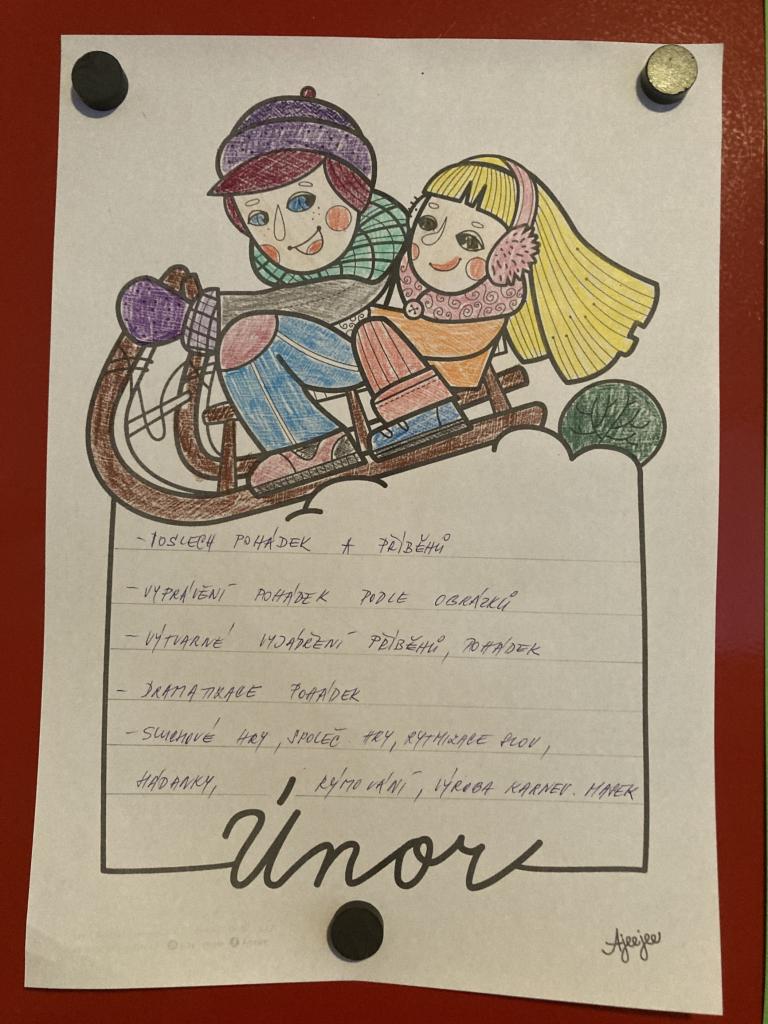 - POSLECH POHÁDEK A PŘÍBĚHŮ
- VYPRÁVĚNÍ POHÁDEK PODLE OBRÁZKŮ
- VÝTVARNÉ VYJÁDŘENÍ PŘÍBĚHŮ, POHÁDEK
- DRAMATIZACE POHÁDEK
- SLUCHOVÉ HRY, SPOLEČ. HRY, RYTMIZACE SLOV,
HÁDANKY, RÝMOVÁNÍ, VÝROBA KARNEV. MASEK
Únor
Ajeejee